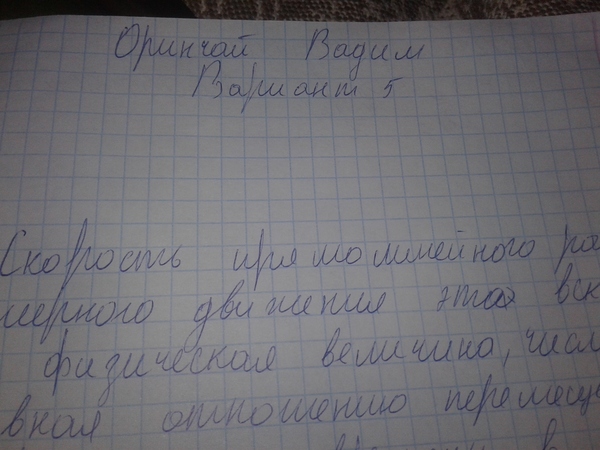 Оринчай Вадим
Вариант 5
Скорость прямолинейного ра
мерного движения это вск
физическая величина, числ
вная отношению перемещ